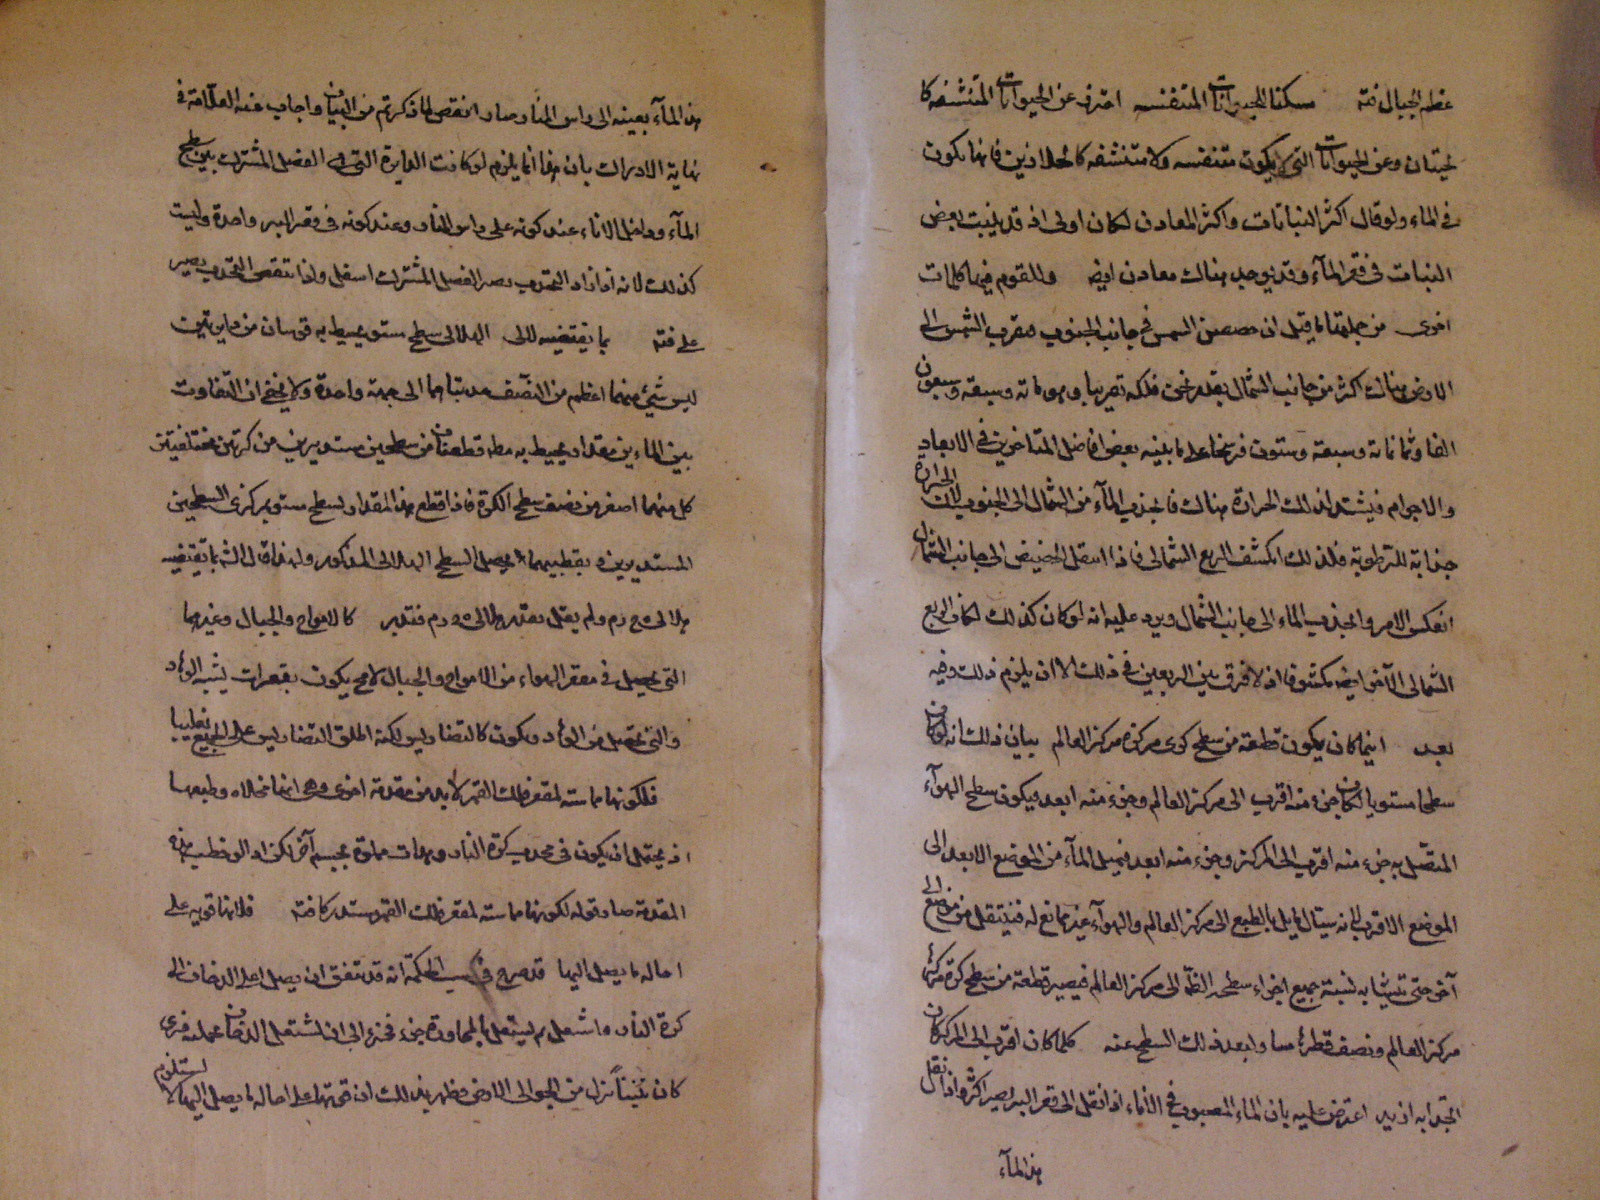 عظم الجبال فته مسكنا للحيوانات المتنفسه احترز عن الحيوانات المتنشقه كا
لحيتان وعن الحيوانات التي لا يكون متنفسه ولا متنشقه كالحلازين فانها يكون
في الماء ولو قال اكثر النباتات واكثر المعادن لكان اولى اذ قد ينبت بعض
النبات في قعر المآء وقد يوجد هناك معادن ايضه وللقوم فيها كلمات
اخرى من جملتها ما قيل ان حضيض الشمس في جانب الجنوب فتقرب الشمس الى
الارض هناك اكثر من جانب الشمال بقدر ثخن فلكه تقريبا وهو مائة وسبعة وسبعون
الفا وثمانمائة وسبعة وستون فرسخا على ما بينه بعض افاضل المتاخرين في الابعاد
والاجرام فيشتد لذلك الحرارة هناك فانجذب المآء من الشمال الى الجنوب لان الحرارة
جذابة للرطوبة فلذلك انكشف الربع الشمالي فاذا انتقل الحضيض الى جانب الشمال
انعكس الامر وانجذب الماء الى جانب الشمال ويرد عليه انه لو كان كذلك لكان الربع
الشمالي الآخر ايضه مكشوفا اذ لا فرق بين الربعين في ذلك الا ان يلزم ذلك وفيه
بعد اينما كان يكون قطعة من سطح كرى مركزه مركز العالم بيان ذلك انه لو كان
سطحا مستويا لكان جزء منه اقرب الى مركز العالم وجزء منه ابعد فيكون سطح الهوآء
المتصل به جزء منه اقرب الى المركز وجزء منه ابعد فيميل المآء من الموضع الابعد الى
الموضع الاقرب لانه سيال مايل بالطبع الى مركز العالم والهوآء غير ممانع له فينتقل من موضع الى
آخر حتى تتشابه نسبة جميع اجزاء سطحه الظ الى مركز العالم فيصير قطعة من سطح كرة مركزها
مركز العالم ونصف قطرها مساو لبعد ذلك السطح عنه كلما كان اقرب الى المركز كان
انجذابه ازيد اعترض عليه بان الماء المصبوب في الاناء اذا انتقل الى قعر البير يصير اكثر واذا نقل
هذا المآء
هذا المآء بعينه الى راس المنار صار انقص لما ذكرتم من البيان واجاب عنه العلامة في
نهاية الادراك بان هذا انما يلزم لو كانت الدايرة التي هي الفصل المشترك بين سطح
المآء وداخل الاناء عند كونه على راس المنار وعند كونه في قعر البير واحدة وليست
كذلك لانه اذا زاد التحدب يصير الفصل المشترك اسفل واذا انتقص التحدب يصير
على فته بما يقتضيه للى الهلالى سطح مستو يحيط به قوسان من دايرتين
ليس شيئ منهما اعظم من النصف محدبتاهما الى جهة واحدة ولا يخفى ان التفاوت
بين المائين مقدار يحيط به قطعتان من سطحين مستديرين من كرتين مختلفيتين
كل منهما اصغر من نصف سطح الكرة فاذا قطع هذا المقدار بسطح مستو يمر بمركزى السطحين
المستديرين وبقطبيهما يحصل السطح الهلالى المذكور ولهذا قال الشه بما يقتضيه
هلالى ولم يقل بقدر هلالى فتدبر كالامواج والجبال وغيرها
التي يحصل في مقعر الهواء من الامواج والجبال يكون بقعرات يشبه الوهاد
والتي يحصل من الوهاد ويكون كالتضاريس لكنه اطلق التضاريس على الجميع تغليبا
فلكونها مماسته لمقعر فلك القمر لابد من مقدمة اخرى وهى انها وطبعها
اذ يحتمل ان يكون في محدب كرة النار وهدات مملوة بجسم آخر لكن هذه
المقدمة صار قوله لكونها مماسته لمقعر فلك القمر مستدركا فته فلانها قوية على
احاله ما يصل اليها قد صرح في كتب الحكمة انه قد يتفق ان يصل اعلى الدخان الى
كرة النار فاشتعل ثم يشتعل بالمجاورة جزء فجزء الى ان اشتعل الدخان بجملته فرى
كان تنينا نزل من الجو الى الارض فظهر بذلك ان قوتها على احاله ما يصل اليها لا يستلزم